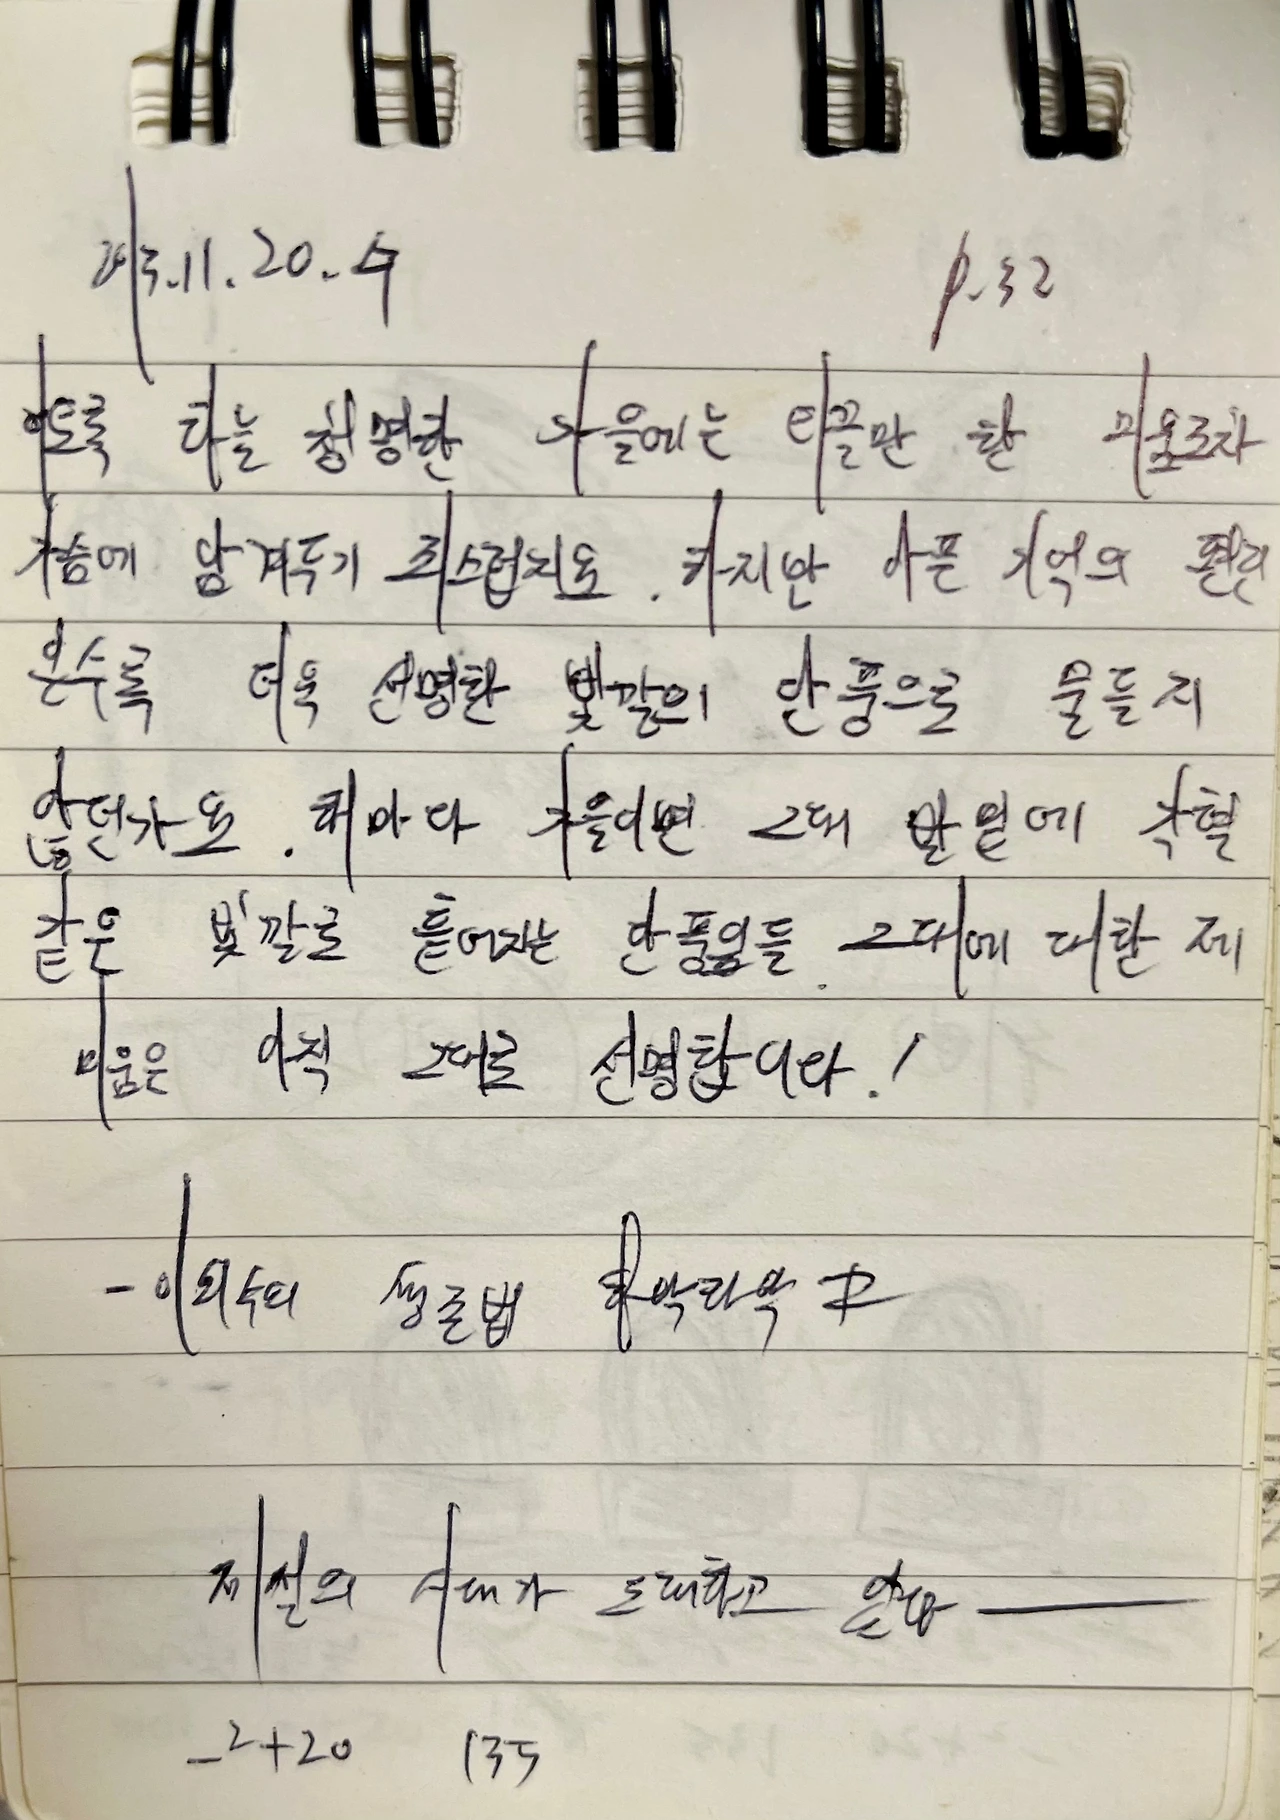 2013.11.20.수 p.32
이토록 하늘 청명한 가을에는 티끌만 한 미움조차
가슴에 담겨두기 죄스럽지요. 하지만 아픈 기억의 편린
일수록 더욱 선명한 빛깔의 단풍으로 물들지
않던가요. 해마다 가을이면 그대 발밑에 각혈
같은 빛깔로 흩어지는 단풍잎들. 그대에 대한 제
미움은 아직 그대로 선명합니다.!
- 이외수의 생존법 하악하악 中
계절의 시대가 도래하고 있다
135